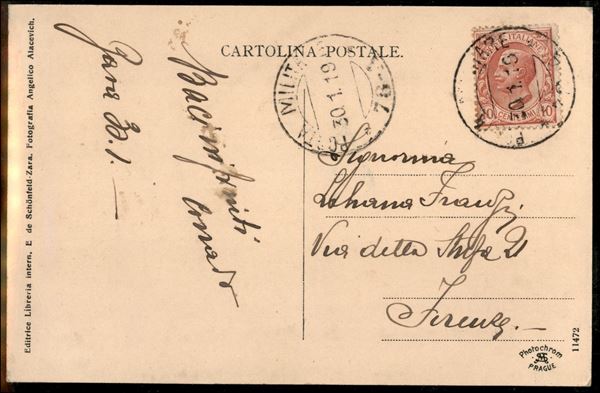 CARTOLINA POSTALE.
Editrice Libreria intern. E de Schönfeld-Zara. Fotografia Angelico Alacevich.
Zara 30.1.
Baci infiniti
Corrado
POSTA MILITARE
30.1.19
30.1.19
CENTESIMI
Signorina
Franzi
Via della Stufa 21
Firenze.
Photochrom
PRAGUE
11472